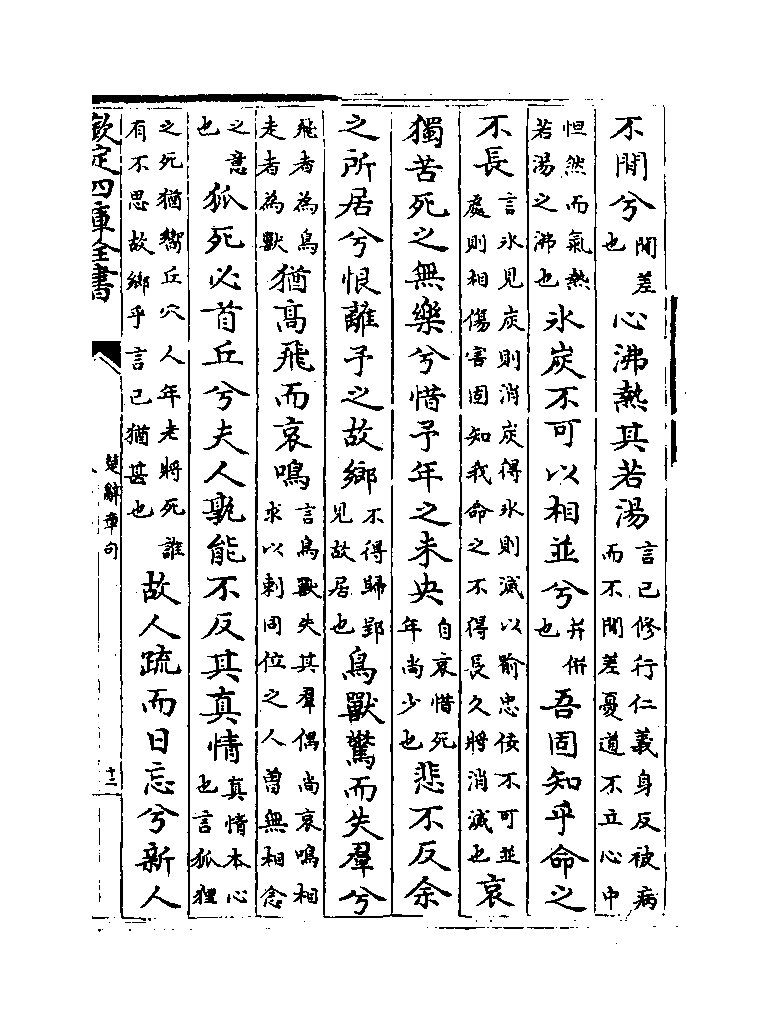 不閒兮閒差也心沸熱其若湯言己修行仁義身反被病而不閒差憂道不立心中
怛然而氣熱若湯之沸也氷炭不可以相並兮并併也吾固知乎命之
不長言氷見炭則消炭得氷則滅以喻忠佞不可並處則相傷害固知我命之不得長久將消滅也哀
獨苦死之無樂兮惜予年之未央自哀惜死年尚少也悲不反余
之所居兮恨離予之故鄉不得歸郢見故居也鳥獸驚而失羣兮
飛者為鳥走者為獸猶高飛而哀鳴言鳥獸失其羣偶尚哀鳴相求以刺同位之人曽無相念
之意也狐死必首丘兮夫人孰能不反其真情真情本心也言狐狸
之死猶嚮丘穴人年老將死誰有不思故鄉乎言己猶甚也故人疏而日忘兮新人
欽定四庫全書
楚辭章句
十二